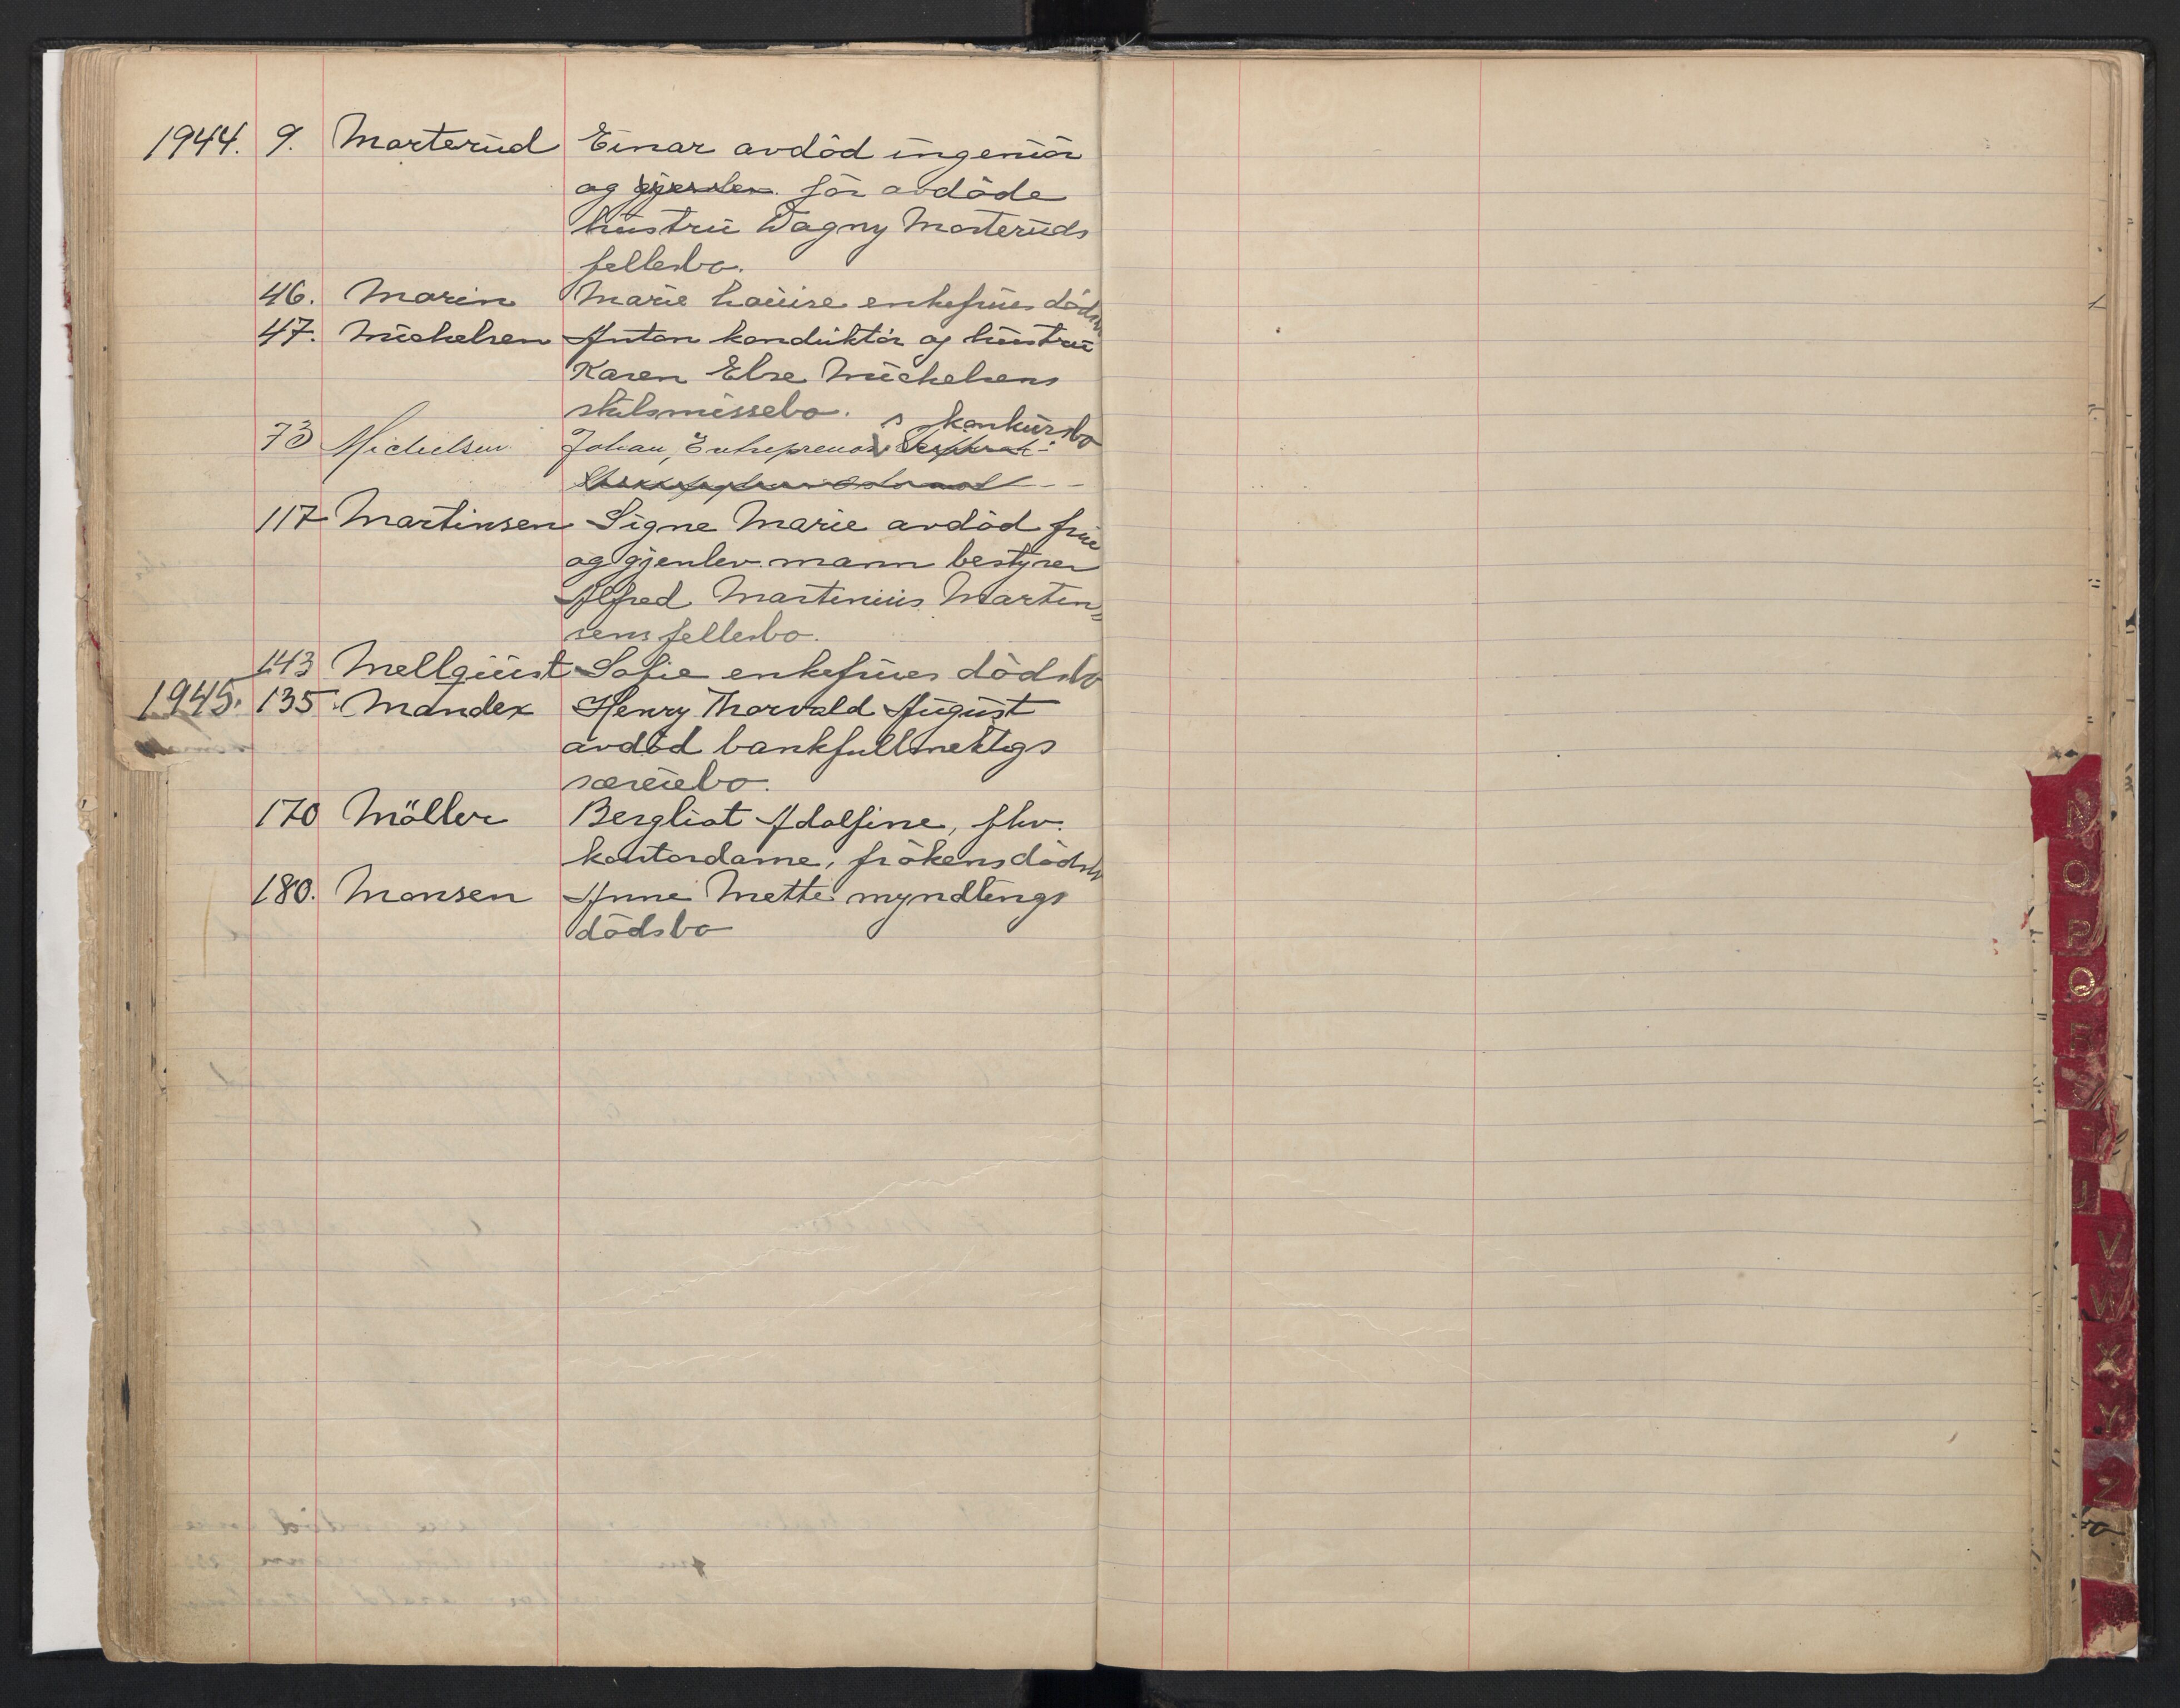 1944. 9. Marterud Einar avdöd ingeniör
og gjenlev. för avdöde
hustru Dagny Marteruds
fellesbo.
46. Marin Marie Louise enkefrues dödsbo
47. Michelsen Anton konduktör og hustru
Karen Else Michelsens
skilsmissebo.
s konkursbo
73 Michelsen Johan, Entreprenör
117 Martinsen Signe Marie avdöd frue
og gjenlev. mann bestyrer
Alfred Martinius Martin=
sens fellesbo.
143 Mellquist Sofie enkefrues dödsbo
1945. 135 Mandex Henry Thorvald August
avdöd bankfullmektigs
særeiebo.
170 Möller Bergliot Adolfine, fhv.
kontordame, frökens dödsbo
180. Monsen Anne Mette myndlings
dödsbo
N
O
P
Q
R
S
T
U
V
W
X
Y
Z